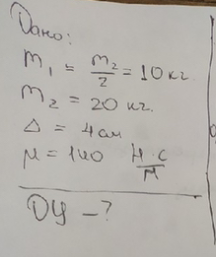 Дано:
m₁ = m₂/2 = 10 кг
m₂ = 20 кг.
Δ = 4 см
μ = 140 Н·с/м
ДУ - ?